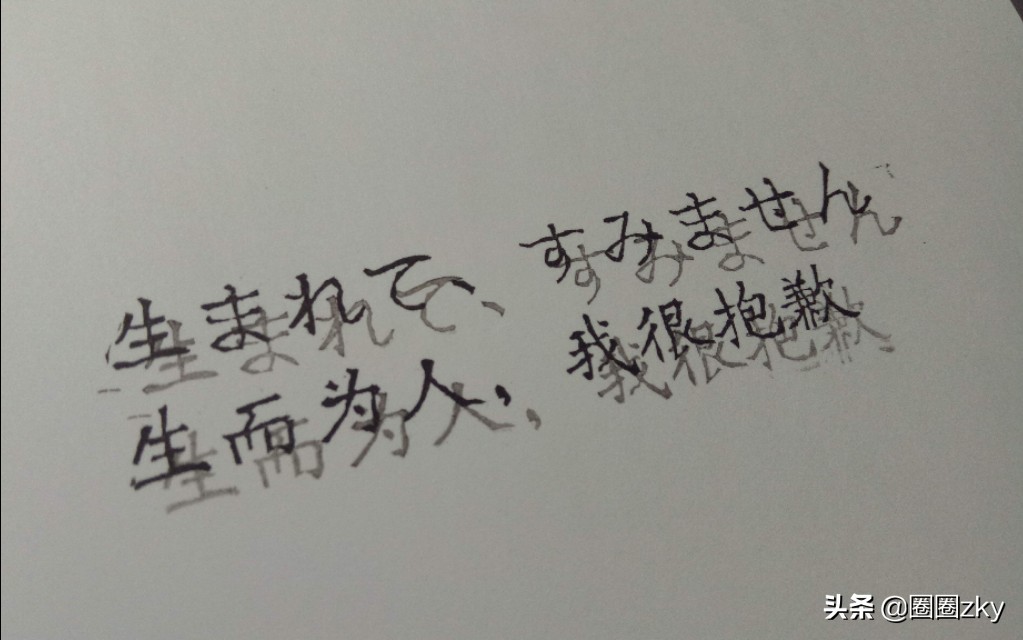 生まれて、すみません
生而为人，我很抱歉
头条 @圈圈zky